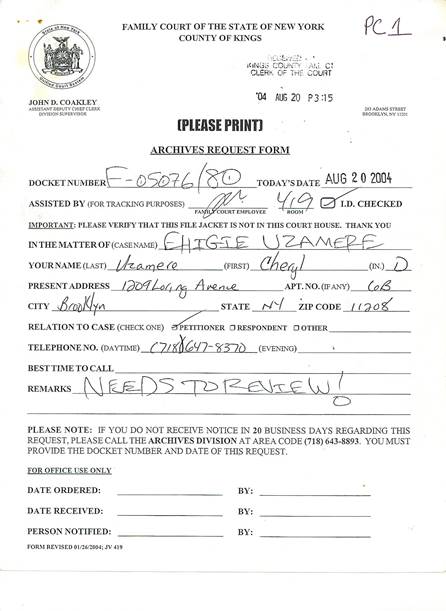 FAMILY COURT OF THE STATE OF NEW YORK
COUNTY OF KINGS
PC1
State of New York
Unified Court System
RECEIVED
KINGS COUNTY FAM CT
CLERK OF THE COURT
'04 AUG 20 P3:15
JOHN D. COAKLEY
ASSISTANT DEPUTY CHIEF CLERK
DIVISION SUPERVISOR
283 ADAMS STREET
BROOKLYN, NY 11201
(PLEASE PRINT)
ARCHIVES REQUEST FORM
DOCKET NUMBER F-05076/80 TODAY'S DATE AUG 20 2004
ASSISTED BY (FOR TRACKING PURPOSES) 419 I.D. CHECKED
FAMILY COURT EMPLOYEE ROOM
IMPORTANT: PLEASE VERIFY THAT THIS FILE JACKET IS NOT IN THIS COURT HOUSE. THANK YOU
IN THE MATTER OF (CASE NAME) EHIGIE UZAMERE
YOUR NAME (LAST) Uzamere (FIRST) Cheryl (IN.) D
PRESENT ADDRESS 1209 Loring Avenue APT. NO. (IF ANY) 6B
CITY Brooklyn STATE NY ZIP CODE 11208
RELATION TO CASE (CHECK ONE) PETITIONER RESPONDENT OTHER
TELEPHONE NO. (DAYTIME) (718) 647-8370 (EVENING)
BEST TIME TO CALL
REMARKS NEEDS TO REVIEW!
PLEASE NOTE: IF YOU DO NOT RECEIVE NOTICE IN 20 BUSINESS DAYS REGARDING THIS
REQUEST, PLEASE CALL THE ARCHIVES DIVISION AT AREA CODE (718) 643-8893. YOU MUST
PROVIDE THE DOCKET NUMBER AND DATE OF THIS REQUEST.
FOR OFFICE USE ONLY
DATE ORDERED: BY:
DATE RECEIVED: BY:
PERSON NOTIFIED: BY:
FORM REVISED 01/26/2004; JV 419